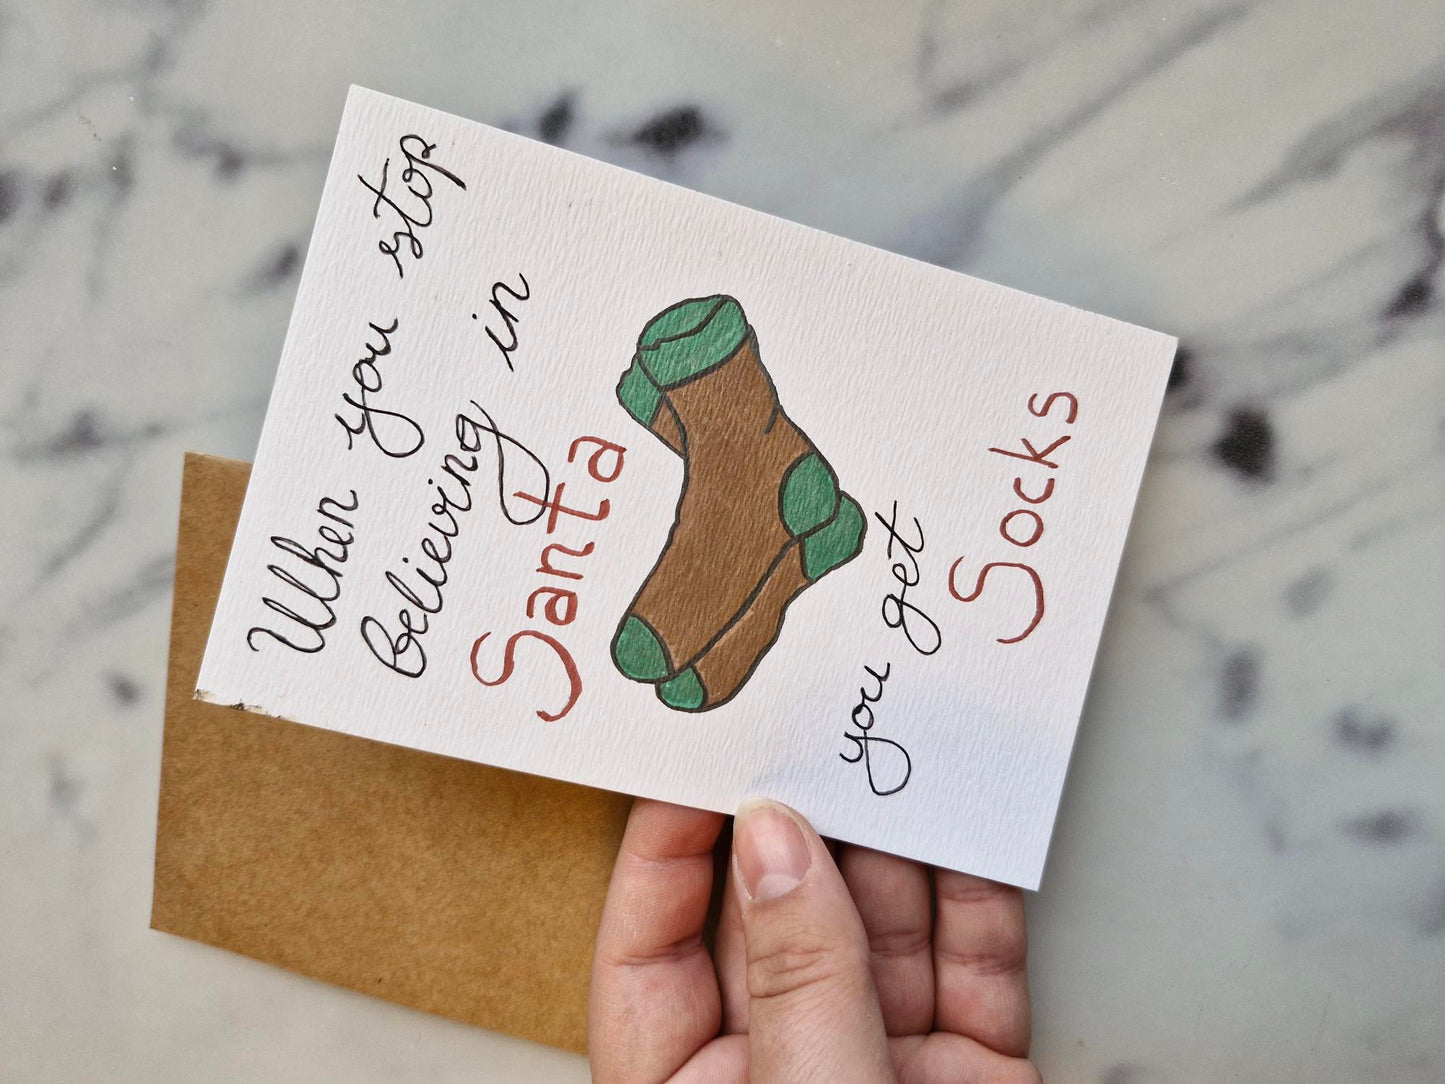 When you stop
believing in
Santa
you get
Socks